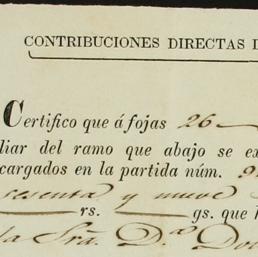 CONTRIBUCIONES DIRECTAS D
Certifico que á fojas 26
liar del ramo que abajo se ex
cargados en la partida núm. 9
sesenta y nueve
rs. gs. que h
la Sra. D.a Do